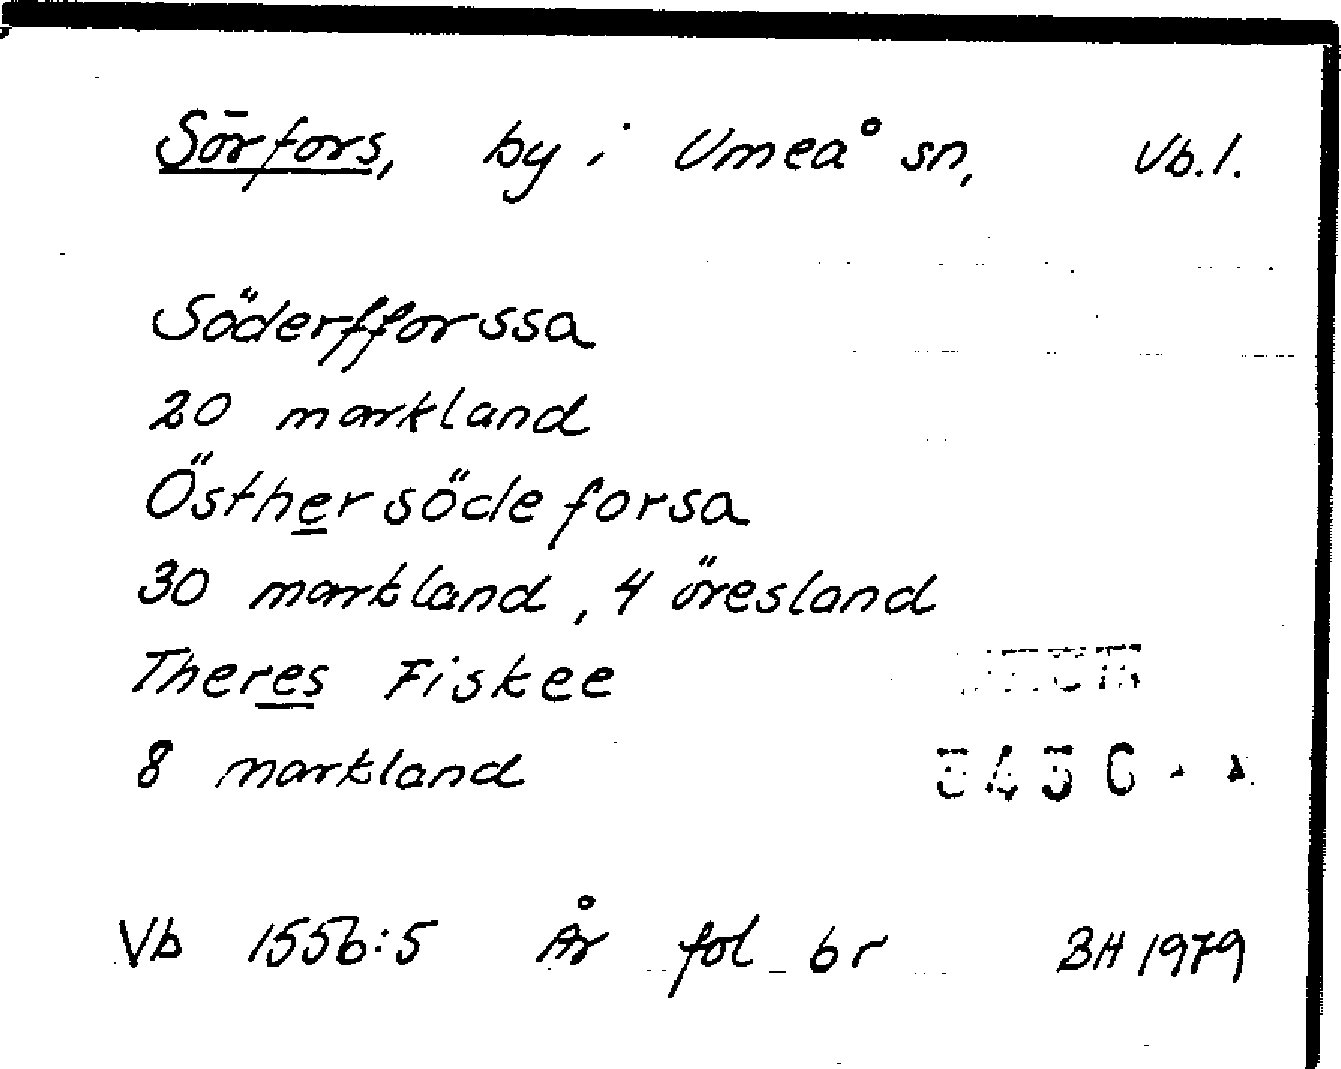 Sörfors, by i Umeå sn, Vb.l.
Söderfforssa
20 markland
Östhersödeforsa
30 markland, 4 öresland
Theres Fiskee
8 markland
Vb 1556:5 År fol 6r BH 1979